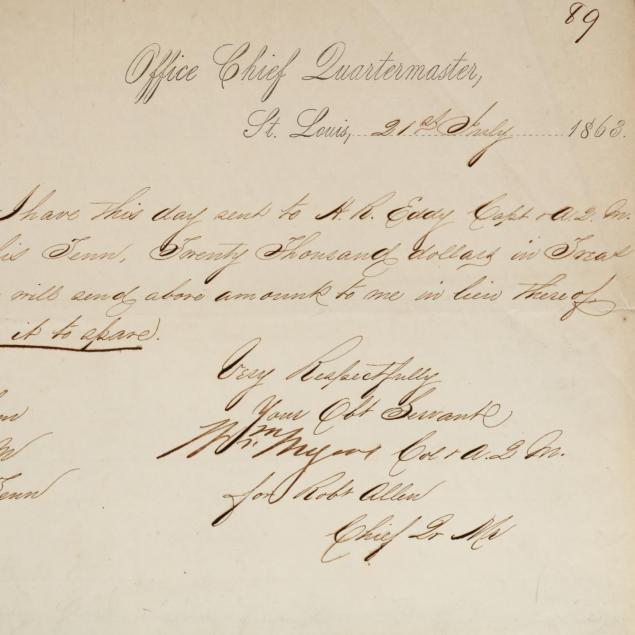 89
Office Chief Quartermaster,
St. Louis, 21st July 1863.
I have this day sent to H. R. Eddy Capt & A. Q. M.
is Tenn, Twenty Thousand dollars in Treas
will send above amount to me in lieu thereof
it to spare).
Very Respectfully
Your Obt Servant
Wm Myers Col & A. Q. M.
for Robt Allen
Chief Qr Mr
Tenn